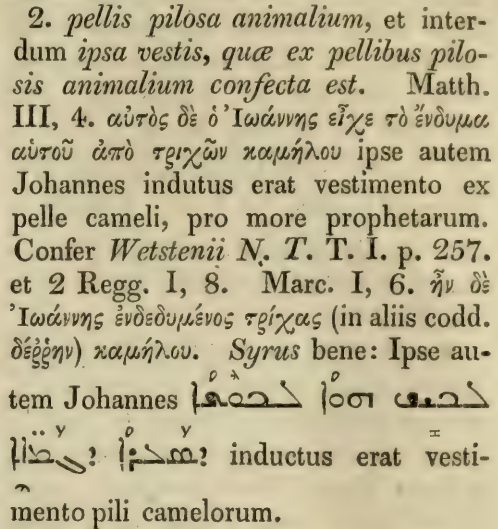 2. pellis pilosa animalium, et inter-
dum ipsa vestis, quæ ex pellibus pilo-
sis animalium confecta est. Matth.
III, 4. αὐτὸς δὲ ὁ Ἰωάννης εἶχε τὸ ἔνδυμα
αὑτοῦ ἀπὸ τριχῶν καμήλου ipse autem
Johannes indutus erat vestimento ex
pelle cameli, pro more prophetarum.
Confer Wetstenii N. T. T. I. p. 257.
et 2 Regg. I, 8. Marc. I, 6. ἦν δὲ
Ἰωάννης ἐνδεδυμένος τρίχας (in aliis codd.
δέῤῥην) καμήλου. Syrus bene: Ipse au-
tem Johannes ܠܒܝܫ ܗܘܳܐ ܠܒܽܘܫܳܐ
ܕܣܰܥܪܳܐ ܕܓܰܡ̈ܠܶܐ inductus erat vesti-
mento pili camelorum.